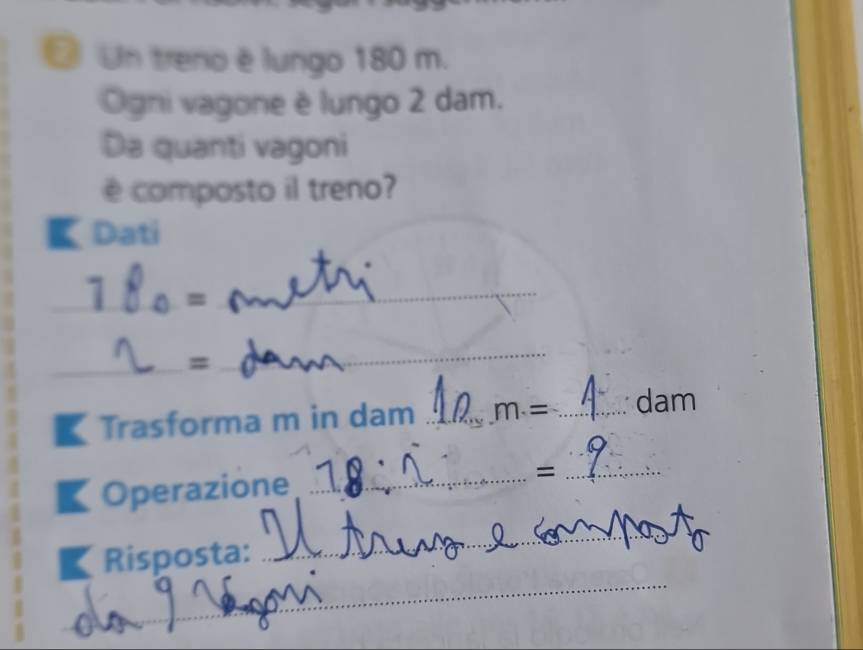 2 Un treno è lungo 180 m.
Ogni vagone è lungo 2 dam.
Da quanti vagoni
è composto il treno?
Dati
180 = metri
2 = dam
Trasforma m in dam 10 m = 1 dam
Operazione 18 : 2 = 9
Risposta: Il treno e composto
da 9 vagoni